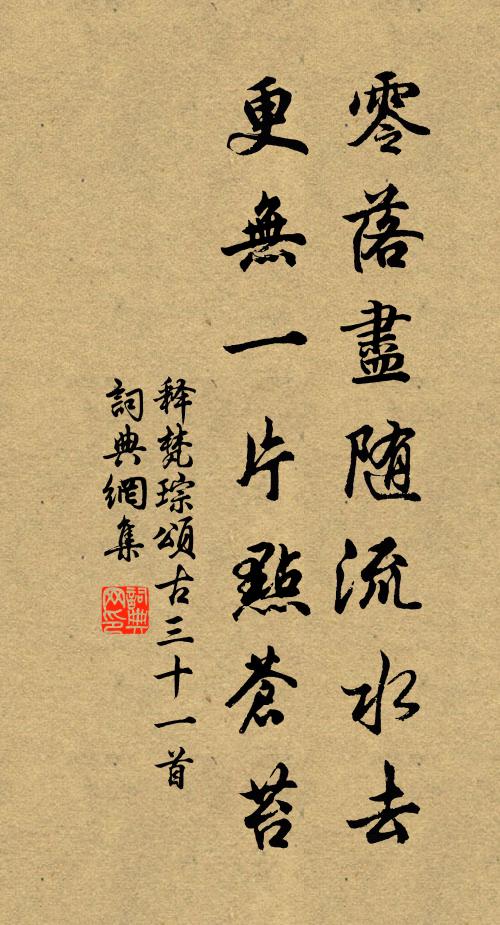 零落盡随流水去
更無一片點蒼苔
释梵琮頌古三十一首
詞典網集
詞典网印